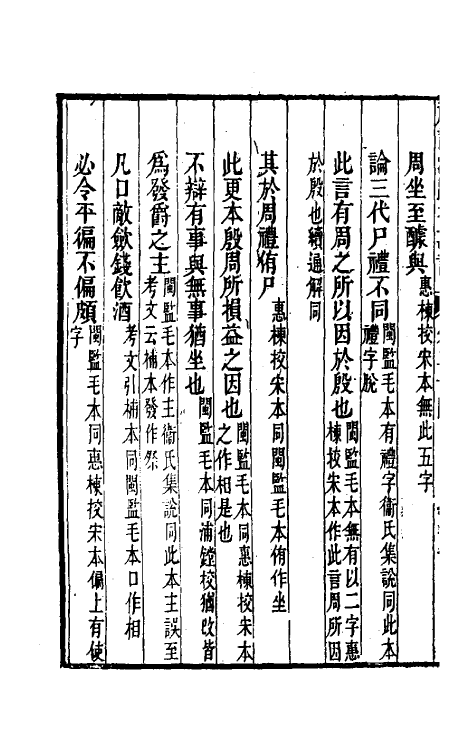 周坐至醵與惠棟挍宋本無此五字
論三代尸禮不同閩監毛本有禮字衞氏集說同此本禮字脫
此言有周之所以因於殷也閩監毛本無有以二字惠棟挍宋本作此言周所因
於殷也續通解同
其於周禮侑尸惠棟挍宋本同閩監毛本侑作坐
此更本殷周所損益之因也閩監毛本同惠棟挍宋本之作相是也
不辯有事與無事猶坐也閩監毛本同浦鏜挍猶改皆
爲發爵之主閩監毛本作主衞氏集說同此本主誤至考文云補本發作祭
凡口敵斂錢飲酒考文引補本同閩監毛本口作相
必令平徧不偏頗閩監毛本同惠棟挍宋本偏上有使字